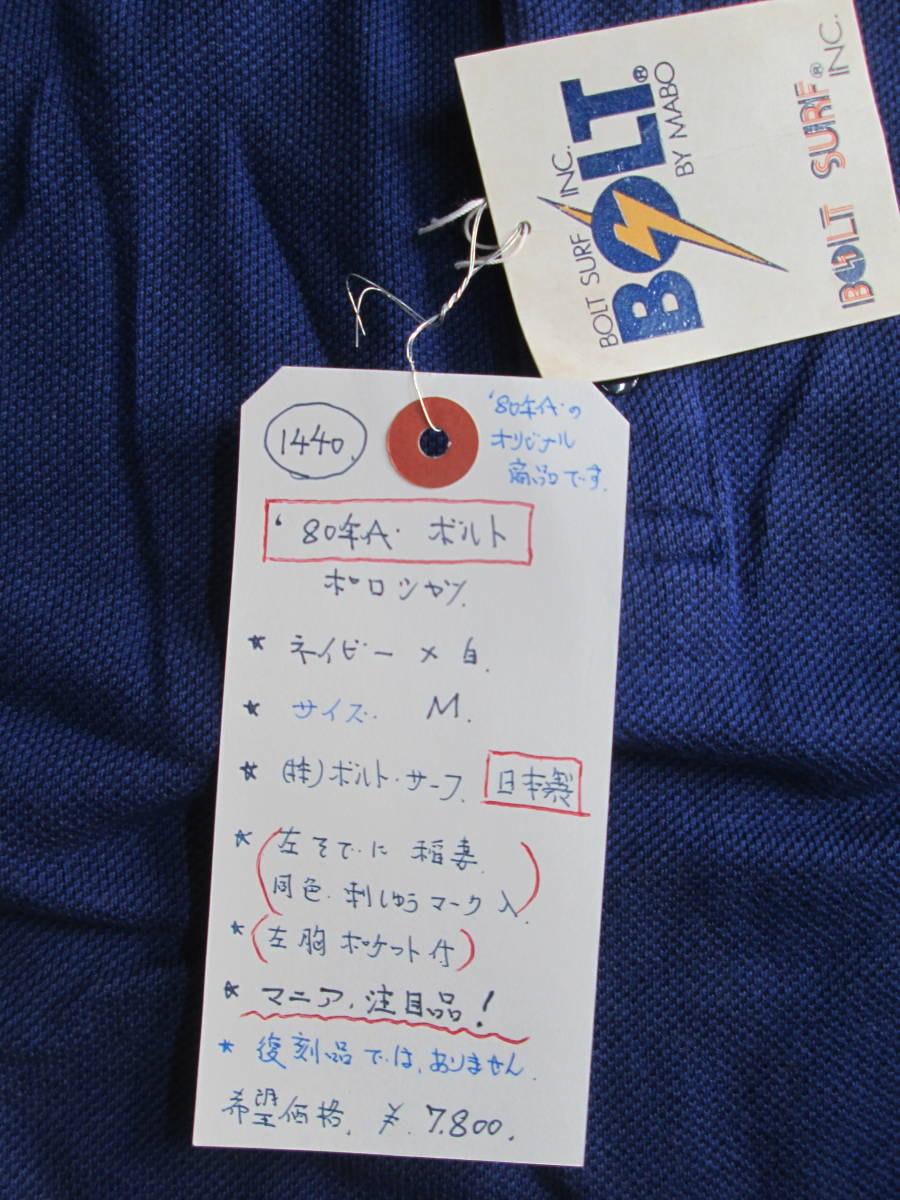 BOLT SURF INC.
BOLT®
BY MABO
BOLT SURF® INC.
1440.
'80年代の
オリジナル
商品です.
'80年代 ボルト
ポロシャツ.
★ ネイビー × 白.
★ サイズ. M.
★ (株)ボルト・サーフ. 日本製
★ (左そでに 稲妻.
同色.刺しゅうマーク入.)
★ (左胸ポケット付)
★ マニア.注目品!
★ 復刻品では,ありません.
希望価格. ¥.7.800.